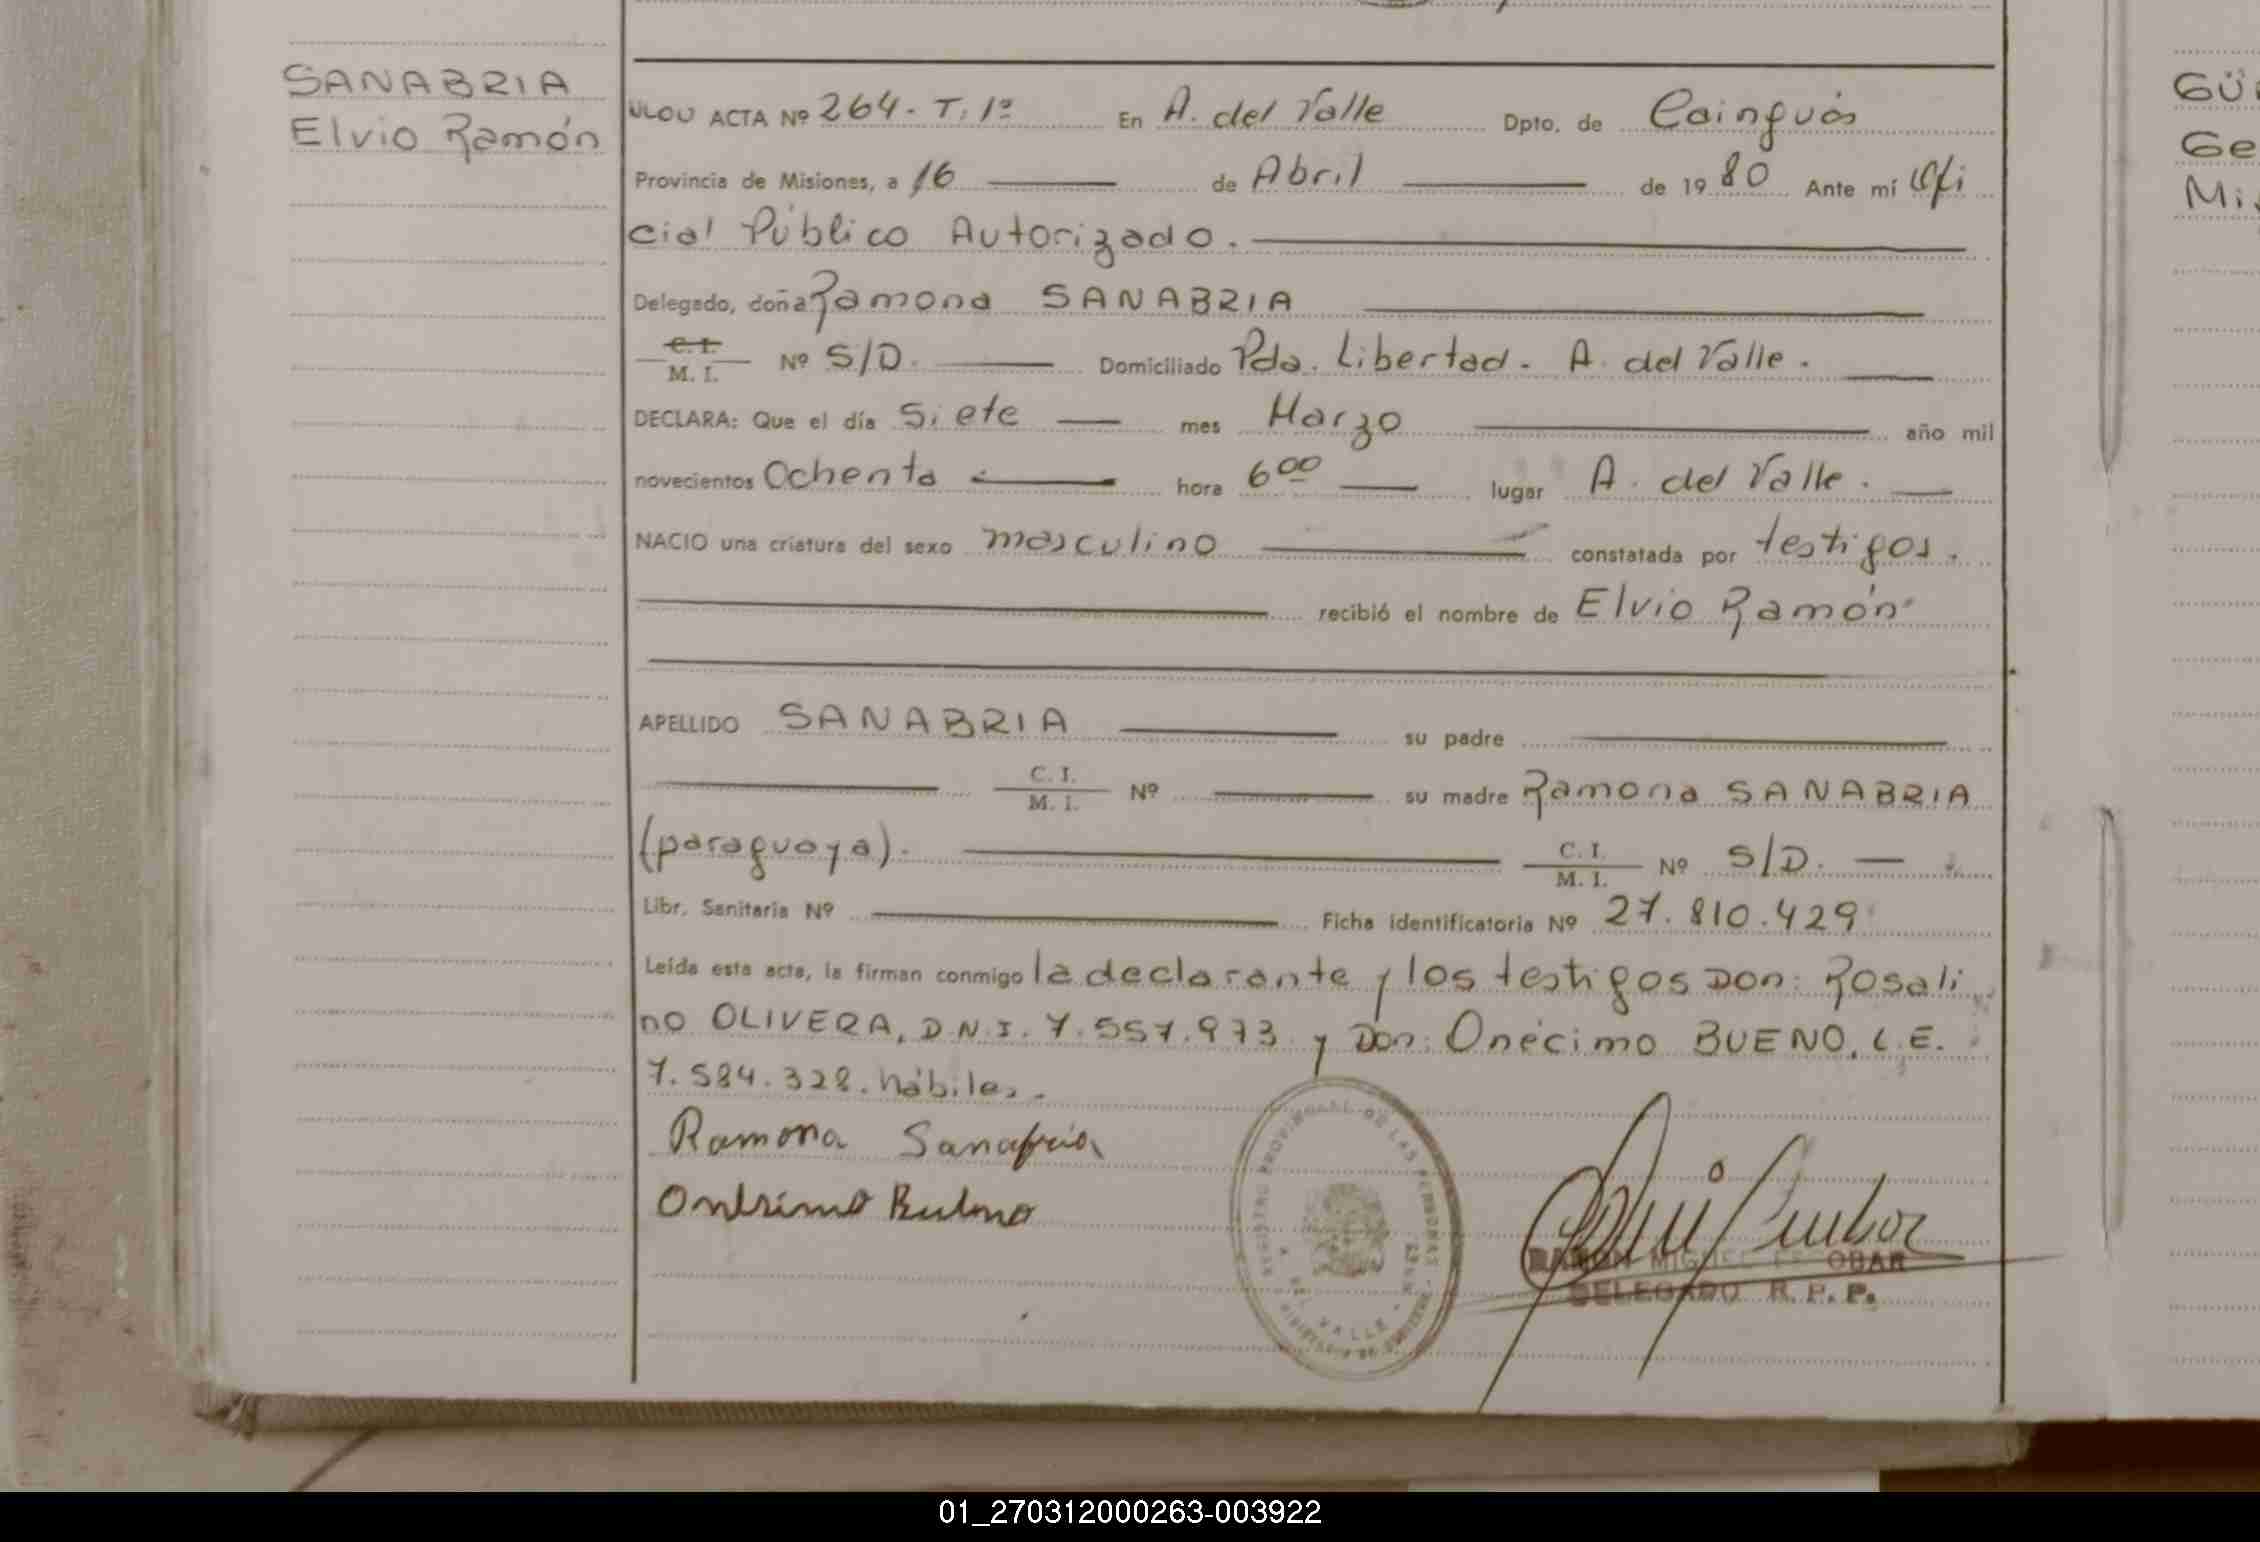 SANABRIA
Elvio Ramón
ACTA Nº 264 - T. 1º En A. del Valle Dpto. de Cainguás
Provincia de Misiones, a 16 de Abril de 1980 Ante mí Ofi
cial Público Autorizado.
Delegado, doña Ramona SANABRIA
C. I.
M. I. Nº S/D. Domiciliado Pda. Libertad. A. del Valle.
DECLARA: Que el día Siete mes Marzo año mil
novecientos Ochenta hora 6 00 lugar A. del Valle.
NACIO una criatura del sexo masculino constatada por testigos.
recibió el nombre de Elvio Ramón
APELLIDO SANABRIA su padre
C. I.
M. I. Nº su madre Ramona SANABRIA
(paraguaya). C. I.
M. I. Nº S/D.
Libr. Sanitaria Nº Ficha identificatoria Nº 27.810.429
Leída esta acta, la firman conmigo la declarante y los testigos Don: Rosali
no OLIVERA, D.N.I. 7.557.973 y Don: Onécimo BUENO, L.E.
7.584.328. hábiles.
Ramona Sanabria
Onésimo Bueno
REGISTRO PROVINCIAL DE LAS PERSONAS
DEL VALLE
RAMON MIGUEL OBAR
DELEGADO R. P. P.
GÜ
Ge
Mi
01_270312000263-003922